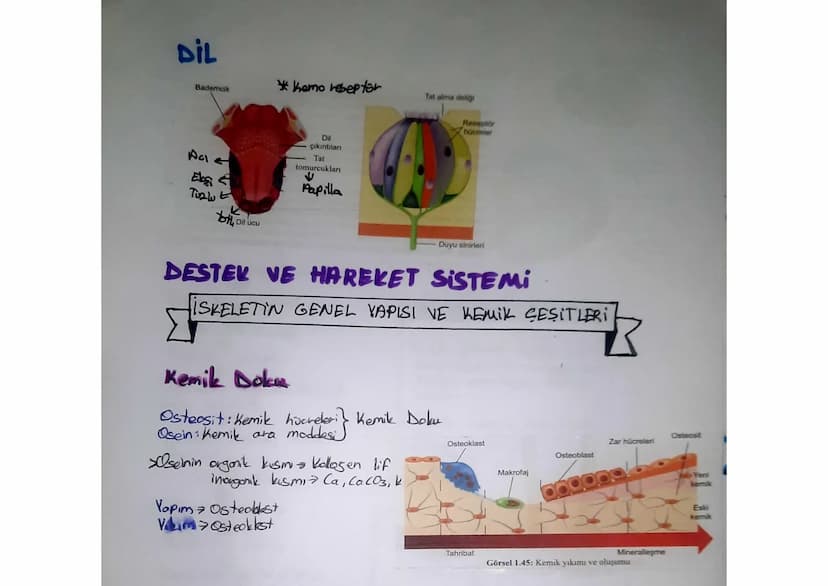 DİL
* Kemo reseptör
Bademcik
Dil
çıkıntıları
Tat
tomurcukları
Papilla
Acı
Ekşi
Tuzlu
Tatlı
Dil ucu
Tat alma deliği
Reseptör
hücreler
Duyu sinirleri
DESTEK VE HAREKET SİSTEMİ
İSKELETİN GENEL YAPISI VE KEMİK ÇEŞİTLERİ
Kemik Doku
Osteosit: Kemik hücreleri } Kemik Doku
Osein: Kemik ara maddesi
Oseinin organik kısmı → Kollagen lif
inorganik kısmı → Ca, CaCO3, K
Yapım → Osteoblast
Yıkım → Osteoklast
Osteoklast
Makrofaj
Osteoblast
Zar hücreleri
Osteosit
Yeni
kemik
Eski
kemik
Tahribat
Mineralleşme
Görsel 1.45: Kemik yıkımı ve oluşumu